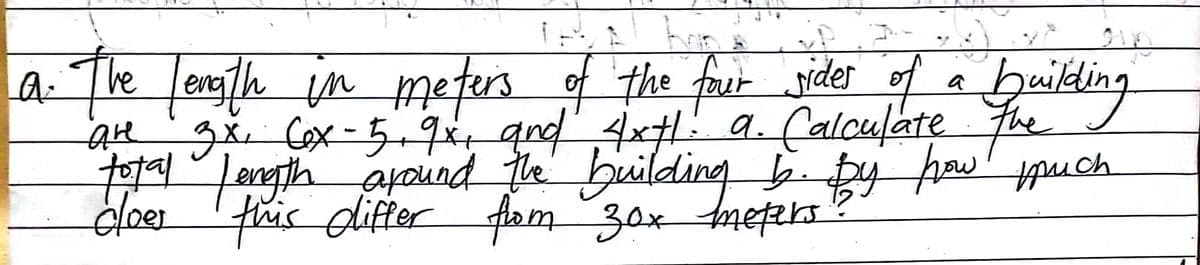 a. The length in meters of the four sides of a building
are 3x, 6x-5, 9x, and 4x+1. a. Calculate the
total length around the building b. By how much
does this differ from 30x meters?